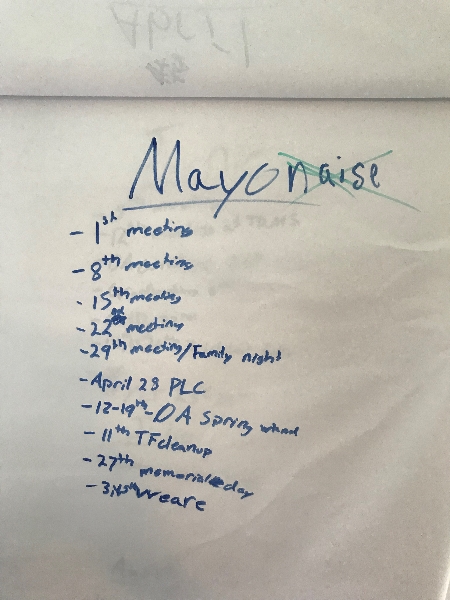 April
Mayonaise
- 1st meeting
- 8th meeting
- 15th meeting
- 22nd meeting
- 29th meeting/Family night
- April 28 PLC
- 12-19th - OA Spring
- 11th TF cleanup
- 27th memorial day
- Weare